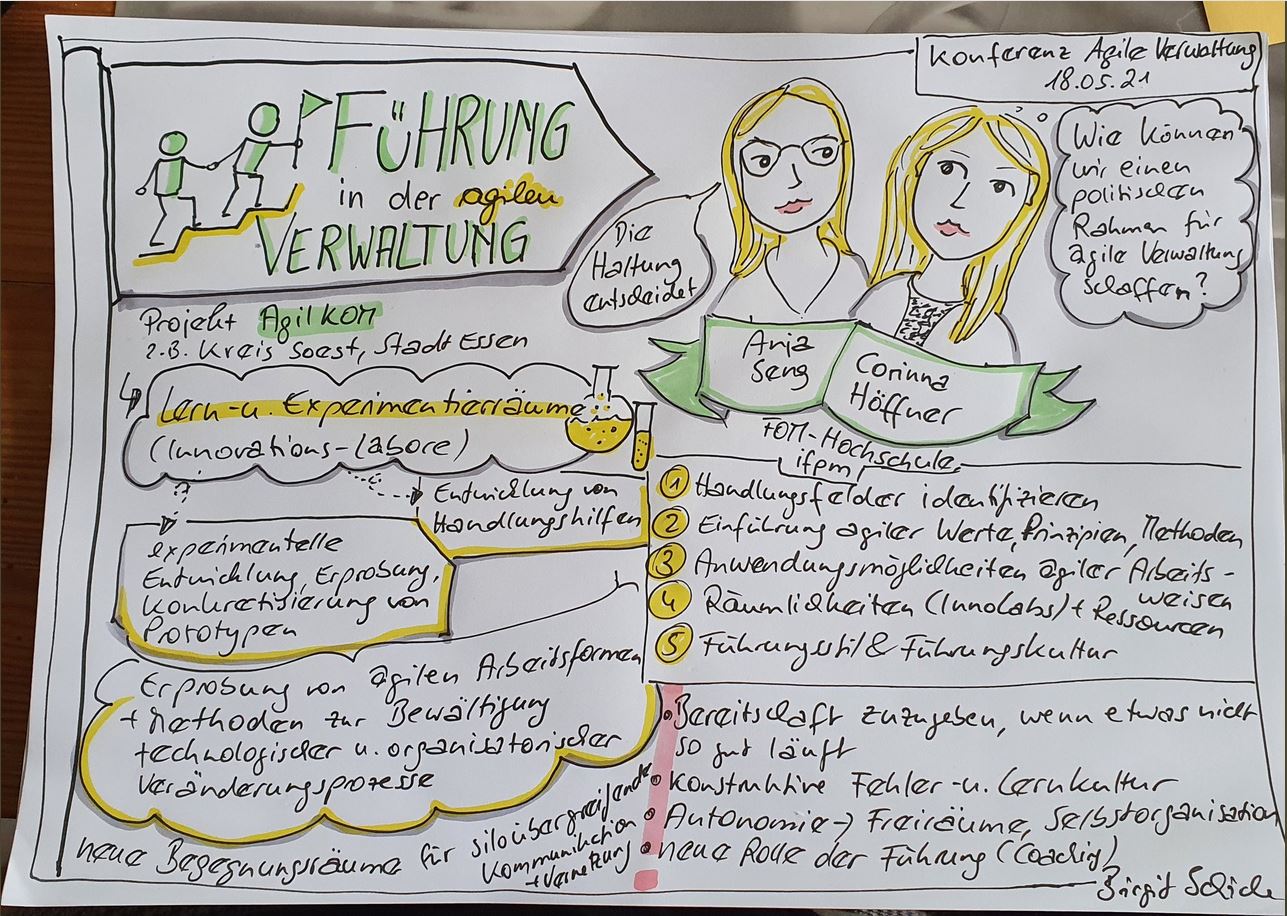 Konferenz Agile Verwaltung
18.05.21
FÜHRUNG
in der agilen
VERWALTUNG
Die
Haltung
entscheidet
Wie können
wir einen
politischen
Rahmen für
agile Verwaltung
schaffen?
Anja
Seng
Corinna
Höffner
FOM-Hochschule,
ifpm
Projekt AgilKOM
z.B. Kreis Soest, Stadt Essen
Lern- u. Experimentierräume
(Innovations-Labore)
Entwicklung von
Handlungshilfen
experimentelle
Entwicklung, Erprobung,
Konkretisierung von
Prototypen
Erprobung von agilen Arbeitsformen
+ Methoden zur Bewältigung
technologischer u. organisatorischer
Veränderungsprozesse
neue Begegnungsräume für siloübergreifende
Kommunikation
+ Vernetzung
1 Handlungsfelder identifizieren
2 Einführung agiler Werte, Prinzipien, Methoden
3 Anwendungsmöglichkeiten agiler Arbeits-
weisen
4 Räumlichkeiten (InnoLabs) + Ressourcen
5 Führungsstil & Führungskultur
• Bereitschaft zuzugeben, wenn etwas nicht
so gut läuft
• Konstruktive Fehler- u. Lernkultur
• Autonomie → Freiräume, Selbstorganisation
• neue Rolle der Führung (Coaching)
Birgit